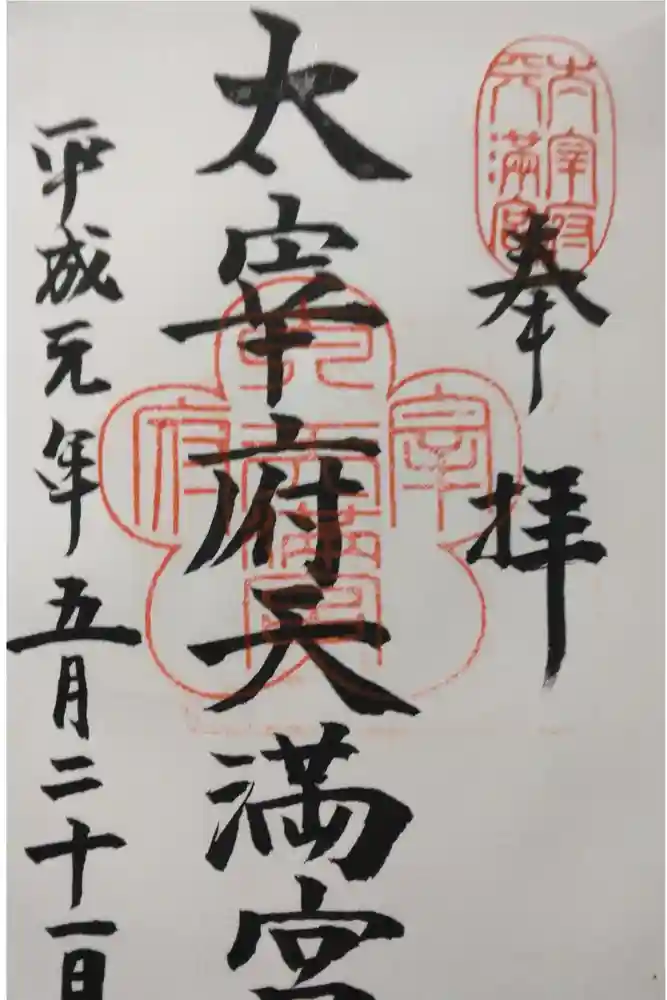 奉拝
太宰府天満宮
太宰府天満宮
平成元年五月二十一日